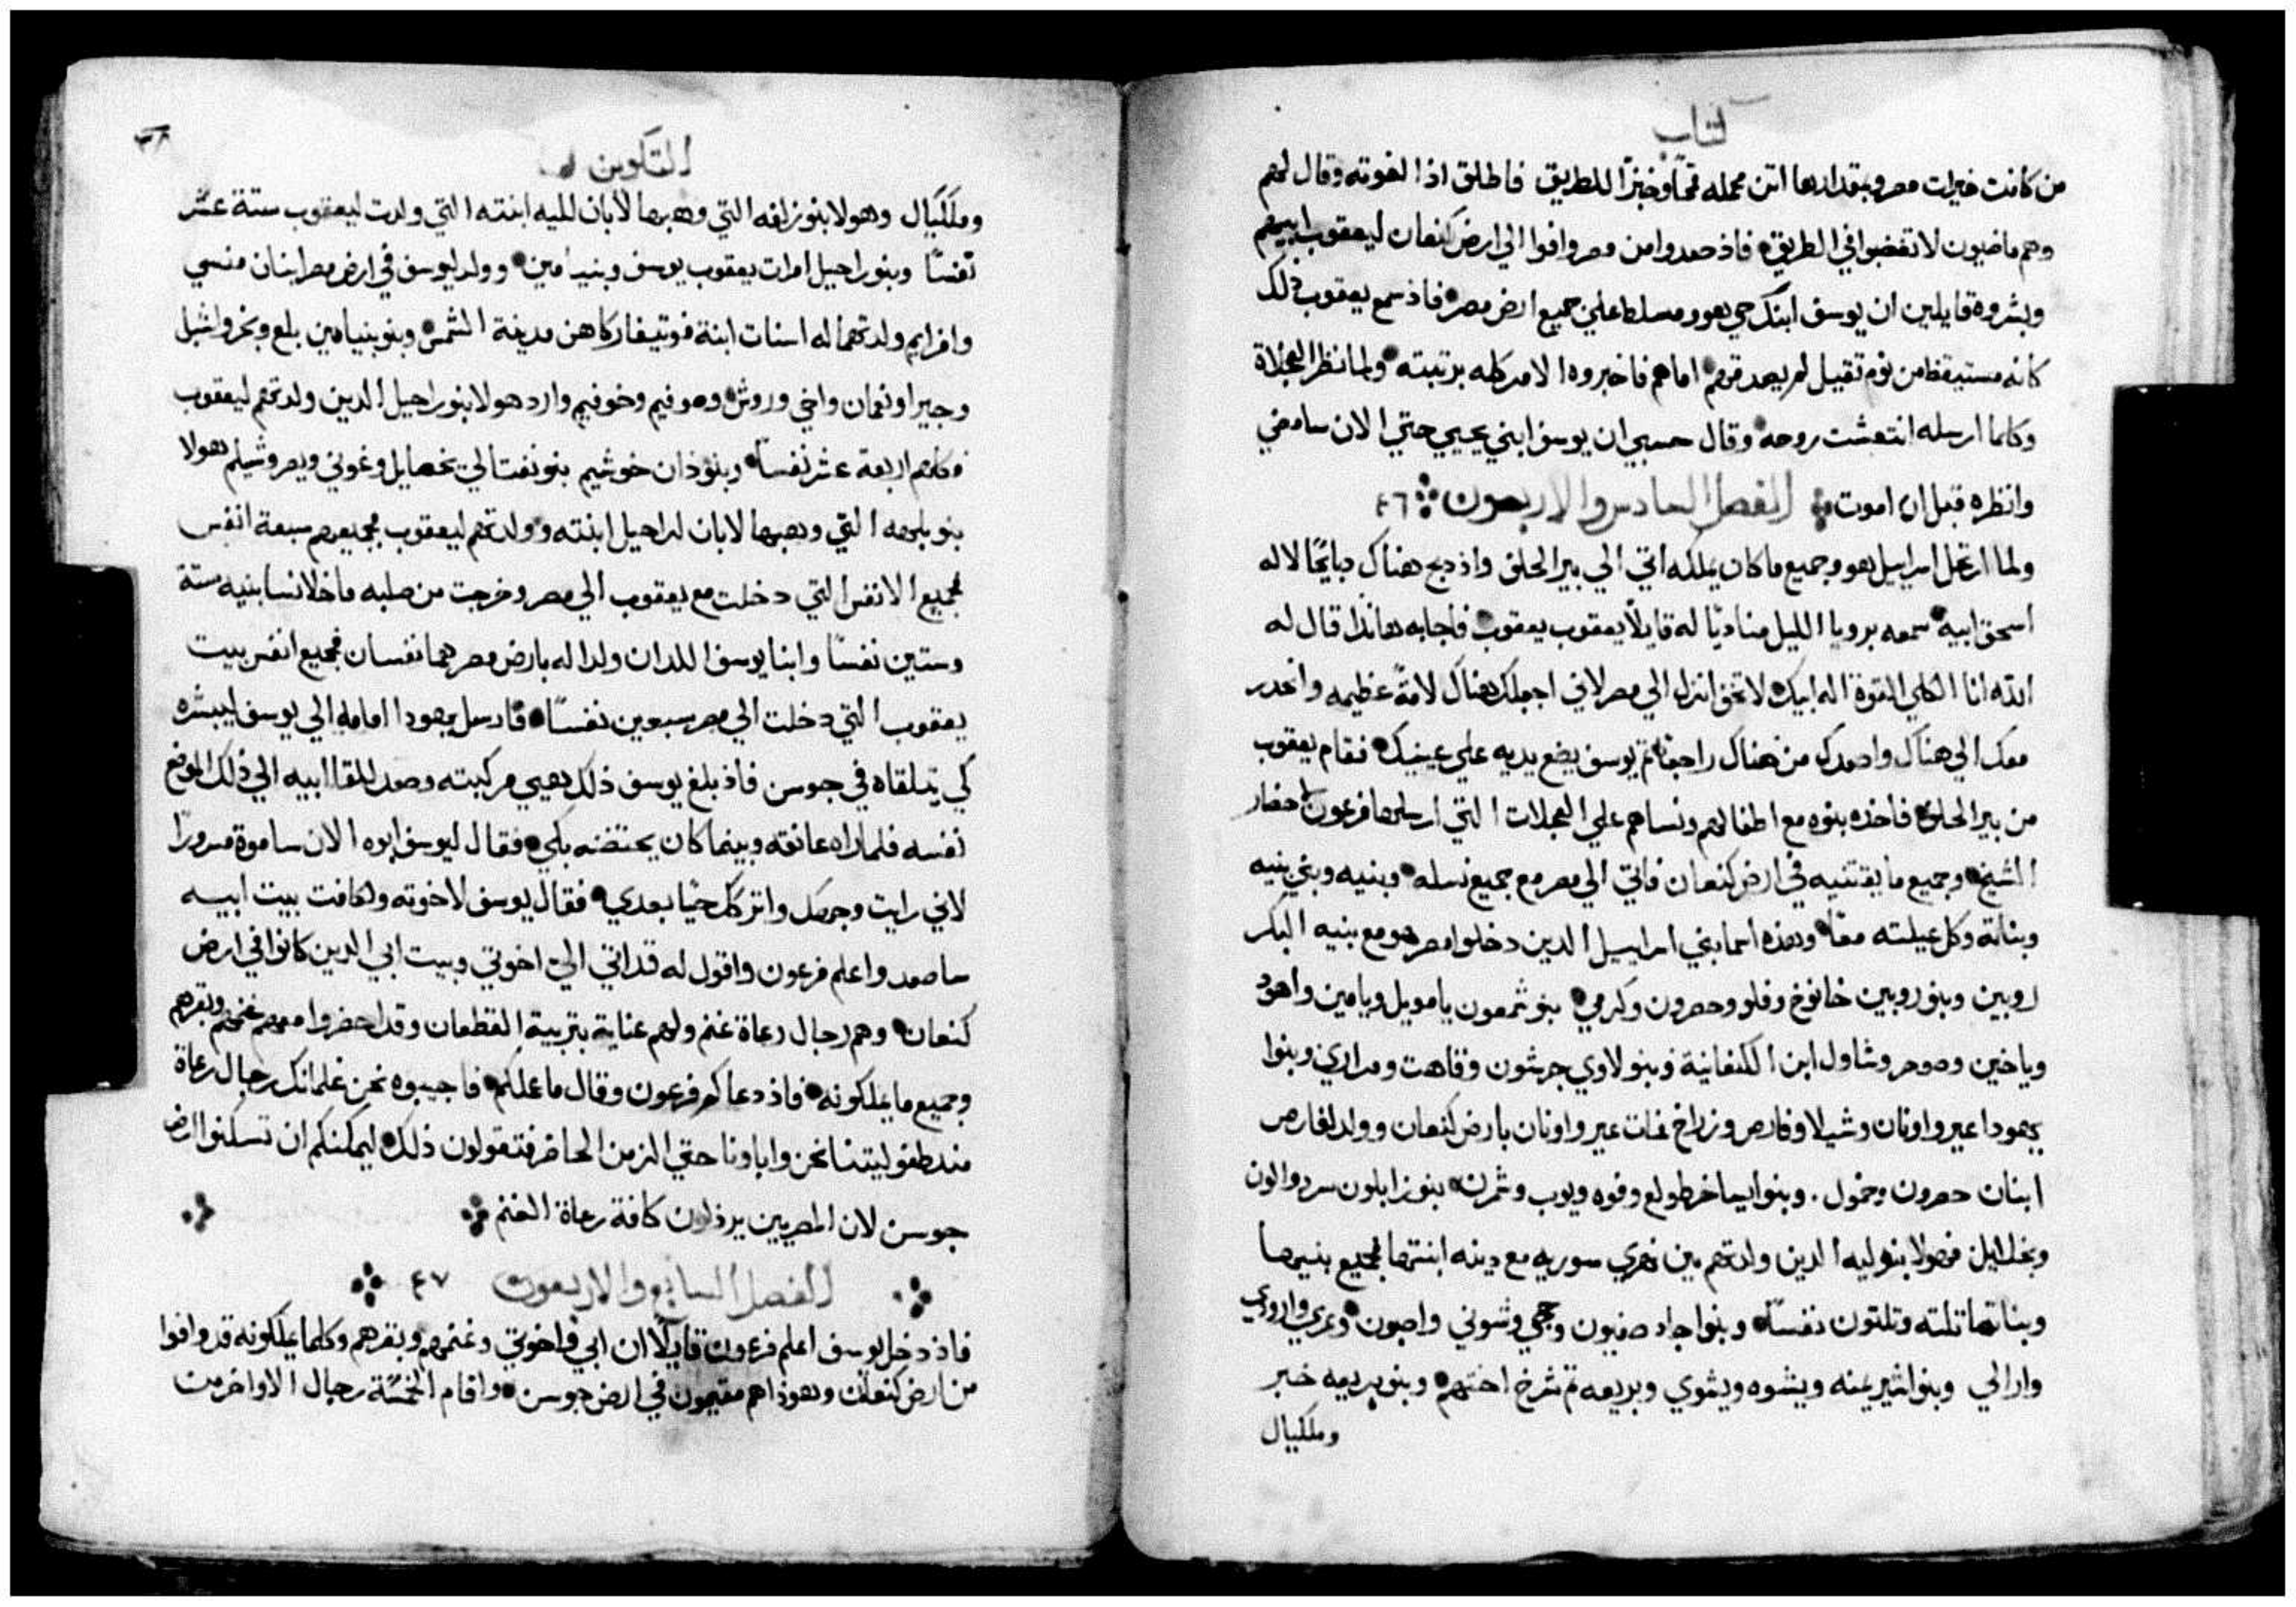 كتاب
من كانت خيرات مصر وبمقدارها اتن محمله قمحًا وخبزًا للطريق فاطلق اذا اخوته وقال لهم
وهم ماضيون لا تغضبوا في الطريق فاذ صعدوا من مصر وافوا الي ارض كنعان ليعقوب ابيهم
وبشروه قايلين ان يوسف ابنك حي هو ومسلط علي جميع ارض مصر فاذ سمع يعقوب ذلك
كانه مستيقظ من نوم تقيل لم يصدقهم اماهم فاخبروه الامر كله برتبته ولما نظر العجلاة
وكلما ارسله انتعشت روحه وقال حسبي ان يوسف ابني يحيي حتي الان سامضي
وانظره قبل ان اموت الفصل السادس والاربعون ٤٦
ولما ارتحل اسراييل هو وجميع ما كان يملكه اتي الي بير الحلف واذ دبح هناك دبايحًا لاله
اسحق ابيه سمعه برويا الليل مناديًا له قايلًا يعقوب يعقوب فاجابه هانذا قال له
الله انا الكلي القوة اله ابيك لا تخف انزل الي مصر لاني اجعلك هناك لامةً عظيمه وانحدر
معك الي هناك واصعدك من هناك راجعًا ثم يوسف يضع يديه علي عينيك فقام يعقوب
من بير الحلف فاخذه بنوه مع اطفالهم ونساهم علي العجلات التي ارسلها فرعون لاحضار
الشيخ وجميع ما يقتنيه في ارض كنعان فاتي الي مصر مع جميع نسله وبنيه وبني بنيه
وبناته وكل عيلته معًا وهذه اسما بني اسراييل الدين دخلوا مصر هو مع بنيه البكر
روبين وبنو روبين خانوخ وفلو وحصرون وكرمي بنو شمعون يامويل ويامين واهود
وياخين وصوحر وشاول ابن الكنعانية وبنو لاوي جرشون وقاهت ومراري وبنوا
يهودا عير واونان وشيلا وفارص وزراخ فمات عير واونان بارض كنعان وولد لفارص
ابنان حصرون وحمول . وبنوا ايساخر طولع وفوه ويوب وشمرن بنو زابلون سرد والون
ويخلاليل فهولا بنو ليه الدين ولدتهم بين نهري سوريه مع دينه ابنتها فجميع بنيها
وبناتها ثلثه وثلثون نفسًا وبنوا جاد صفيون وحجي وشوني واصبون وعيري وارودي
وارالي وبنوا اشير يمنه ويشوه ويشوي وبريعه ثم شرخ اختهم وبنو بريعه خبر
وملكيال
٣٨
التكوين
وملكيال وهولا بنو زلفه التي وهبها لابان لليه ابنته التي ولدت ليعقوب ستة عشر
نفسًا وبنو راحيل امرات يعقوب يوسف وبنيامين وولد ليوسف في ارض مصر ابنان منسي
وافرايم ولدتهما له اسنات ابنة فوتيفار كاهن مدينة الشمس وبنو بنيامين بلع وبخر واشبل
وجيرا ونعمان واخي وروش وموفيم وخوفيم وارد هولا بنو راحيل الدين ولدتهم ليعقوب
وكلهم اربعة عشر نفسًا وبنو ذان خوشيم بنو نفتالي يخصايل وغوني ويصر وشيلم هولا
بنو بلهه التي وهبها لابان لراحيل ابنته وولدتهم ليعقوب فجميعهم سبعة انفس
فجميع الانفس التي دخلت مع يعقوب الي مصر وخرجت من صلبه ما خلا نسا بنيه ستة
وستين نفسًا وابنا يوسف اللدان ولدا له بارض مصر هما نفسان فجميع انفس بيت
يعقوب التي دخلت الي مصر سبعين نفسًا فارسل يهودا امامه الي يوسف ليبشره
كي يتلقاه في جوسن فاذ بلغ يوسف ذلك هيي مركبته وصعد للقا ابيه الي ذلك الموضع
نفسه فلما راه عانقه وبينما كان يحتضنه بكي فقال ليوسف ابوه الان ساموة مسرورًا
لاني رايت وجهك واتركك حيًا بعدي فقال يوسف لاخوته ولكافت بيت ابيه
ساصعد واعلم فرعون واقول له قد اتي الي اخوتي وبيت ابي الدين كانوا في ارض
كنعان وهم رجال رعاة غنم ولهم عناية بتربية القطعان وقد احضروا معهم غنمهم وبقرهم
وجميع ما يملكونه فاذ دعاكم فرعون وقال ما عملكم فاجيبوه نحن غلمانك رجال رعاة
مند طفوليتنا نحن واباونا حتي الزمن الحاضر فتقولون ذلك ليمكنكم ان تسكنوا ارض
جوسن لان المصريين يرذلون كافة رعاة الغنم
الفصل السابع والاربعون ٤٧
فاذ دخل يوسف اعلم فرعون قايلًا ان ابي واخوتي وغنمهم وبقرهم وكلما يملكونه قد وافوا
من ارض كنعان وهوذا هم مقيمون في ارض جوسن واقام الخمسًة رجال الاواخر من